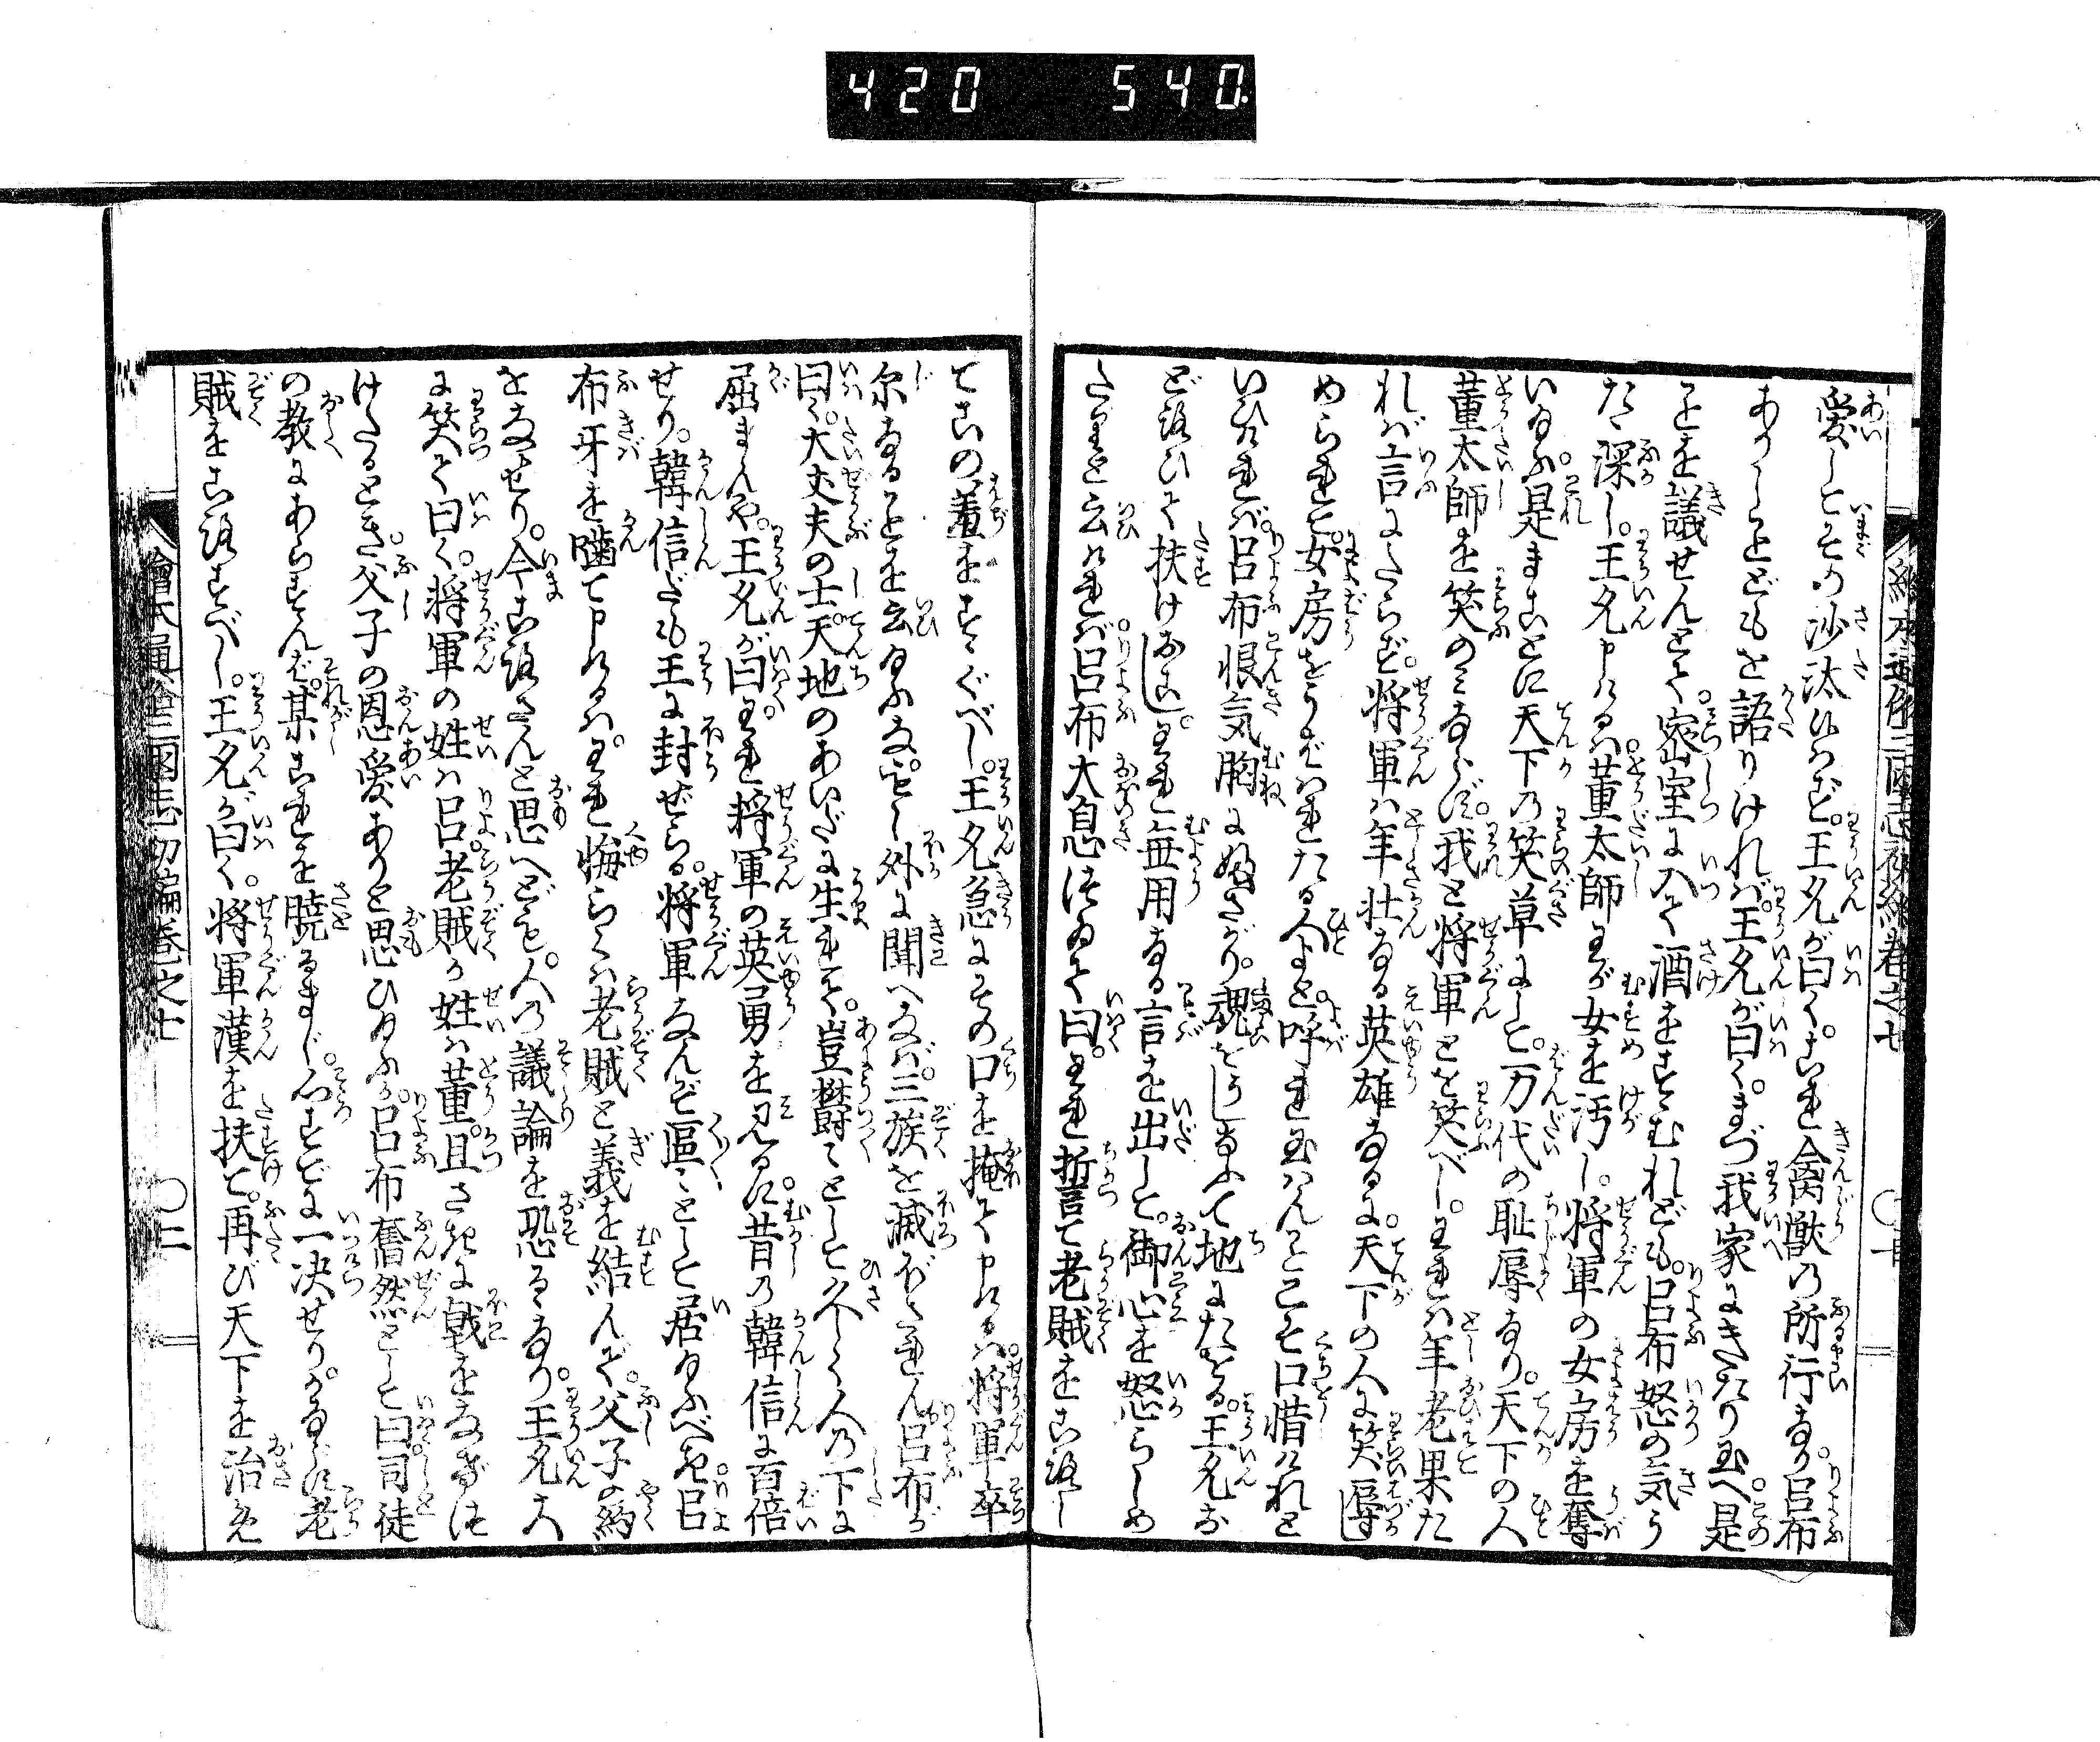 420 540.
愛してその沙汰なはず。王允が曰く。これ禽獣の所行なり。呂布
ありしことどもを語りければ。王允が曰く。まづ我家にきたり玉へ。是
ことを議せんとて。密室に入て酒をすすむれども。呂布怒の気う
たゝ深し。王允申けるは。董太師わが女を汚し。将軍の女房を奪
い給ふ。是まことに天下の笑草にして。万代の恥辱なり。天下の人
董太師を笑のみならず。我と将軍とを笑べし。われは年老果た
れば言にたらず。将軍は年壮なる英雄なるに。天下の人に笑辱し
められて。女房をうばはれたる人よと。呼れ玉はんことこそ口惜けれと
いひければ。呂布恨気胸に塞さがり。魂をうしなふて地にたをる。王允お
どろひて扶けおこし。われ無用なる言を出して。御心を怒らしめ
たりと云ければ。呂布大息ついて曰。われ誓て老賊をころし
てこの羞をすゝぐべし。王允急にその口を掩て申けるは。将軍卒
尓なることを云給ふな。もし外に聞へなば。三族を滅ぼされん。呂布が
曰く。大丈夫の士。天地のあいだに生れて。豈欝々として久しく人の下に
屈まんや。王允が曰。われ将軍の英勇を見るに。昔の韓信に百倍
せり。韓信だも王に封ぜらる。将軍なんぞ區々として居給ふべき。呂
布牙を噛て申けるは。われ悔らくは老賊と義を結んで。父子の約
をなせり。今ころさんと思へども。人の議論を恐るゝなり。王允大
に笑て曰く。将軍の姓は呂。老賊が姓は董。且さきに戟をなげつ
けたるとき。父子の恩愛ありと思ひ給ふか。呂布奮然として曰。司徒
の教にあらずんば。某これを暁るまじ。心すでに一決せり。かならず老
賊をころすべし。王允が曰く。将軍漢を扶て。再び天下を治め
繪本通俗三國志初編巻之七
〇二